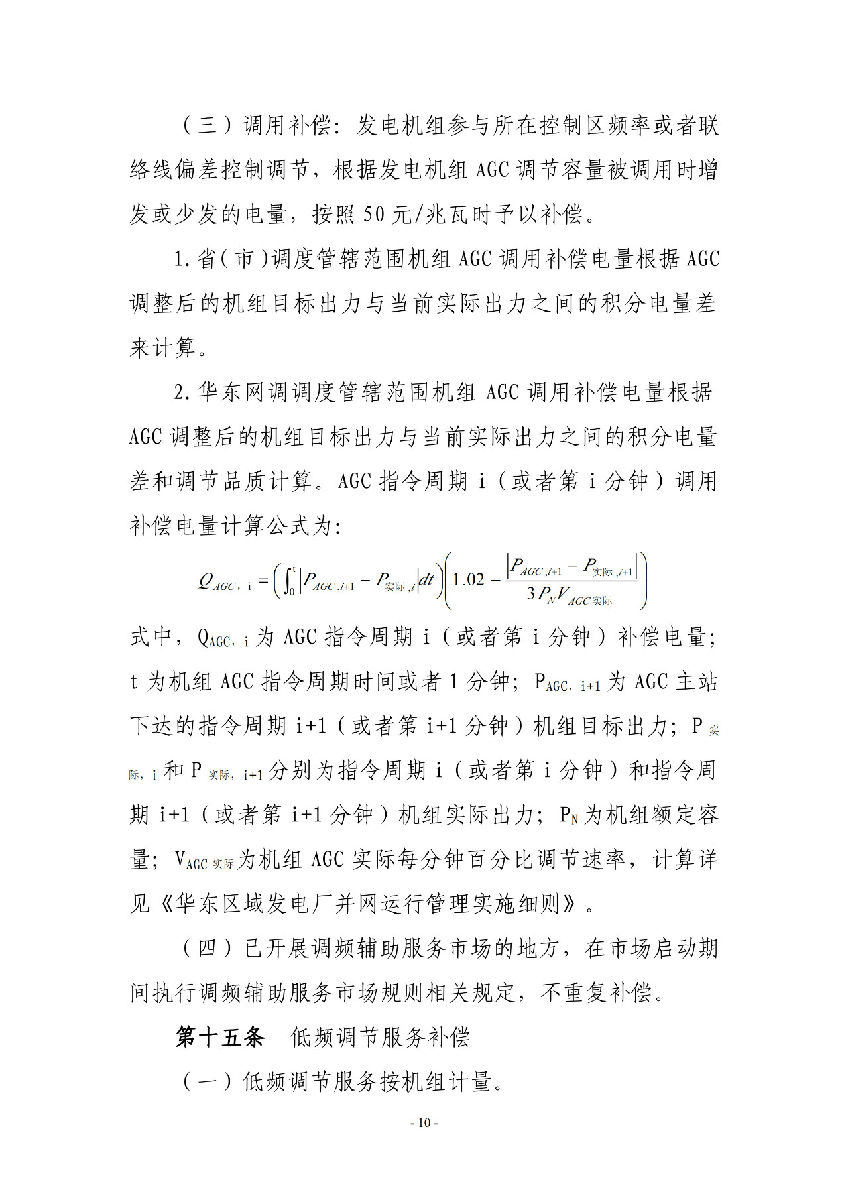 （三）调用补偿：发电机组参与所在控制区频率或者联
络线偏差控制调节，根据发电机组 AGC 调节容量被调用时增
发或少发的电量，按照 50 元/兆瓦时予以补偿。
1.省(市)调度管辖范围机组 AGC 调用补偿电量根据 AGC
调整后的机组目标出力与当前实际出力之间的积分电量差
来计算。
2.华东网调调度管辖范围机组 AGC 调用补偿电量根据
AGC 调整后的机组目标出力与当前实际出力之间的积分电量
差和调节品质计算。AGC 指令周期 i（或者第 i 分钟）调用
补偿电量计算公式为：
Q_{AGC，i} = (∫_0^t |P_{AGC,i+1} − P_{实际,i}| dt)(1.02 − |P_{AGC,i+1} − P_{实际,i+1}| / 3P_N V_{AGC实际})
式中，Q_{AGC，i} 为 AGC 指令周期 i（或者第 i 分钟）补偿电量；
t 为机组 AGC 指令周期时间或者 1 分钟；P_{AGC，i+1} 为 AGC 主站
下达的指令周期 i+1（或者第 i+1 分钟）机组目标出力；P 实
际，i 和 P 实际，i+1 分别为指令周期 i（或者第 i 分钟）和指令周
期 i+1（或者第 i+1 分钟）机组实际出力；P_N 为机组额定容
量；V_{AGC 实际} 为机组 AGC 实际每分钟百分比调节速率，计算详
见《华东区域发电厂并网运行管理实施细则》。
（四）已开展调频辅助服务市场的地方，在市场启动期
间执行调频辅助服务市场规则相关规定，不重复补偿。
第十五条 低频调节服务补偿
（一）低频调节服务按机组计量。
- 10 -